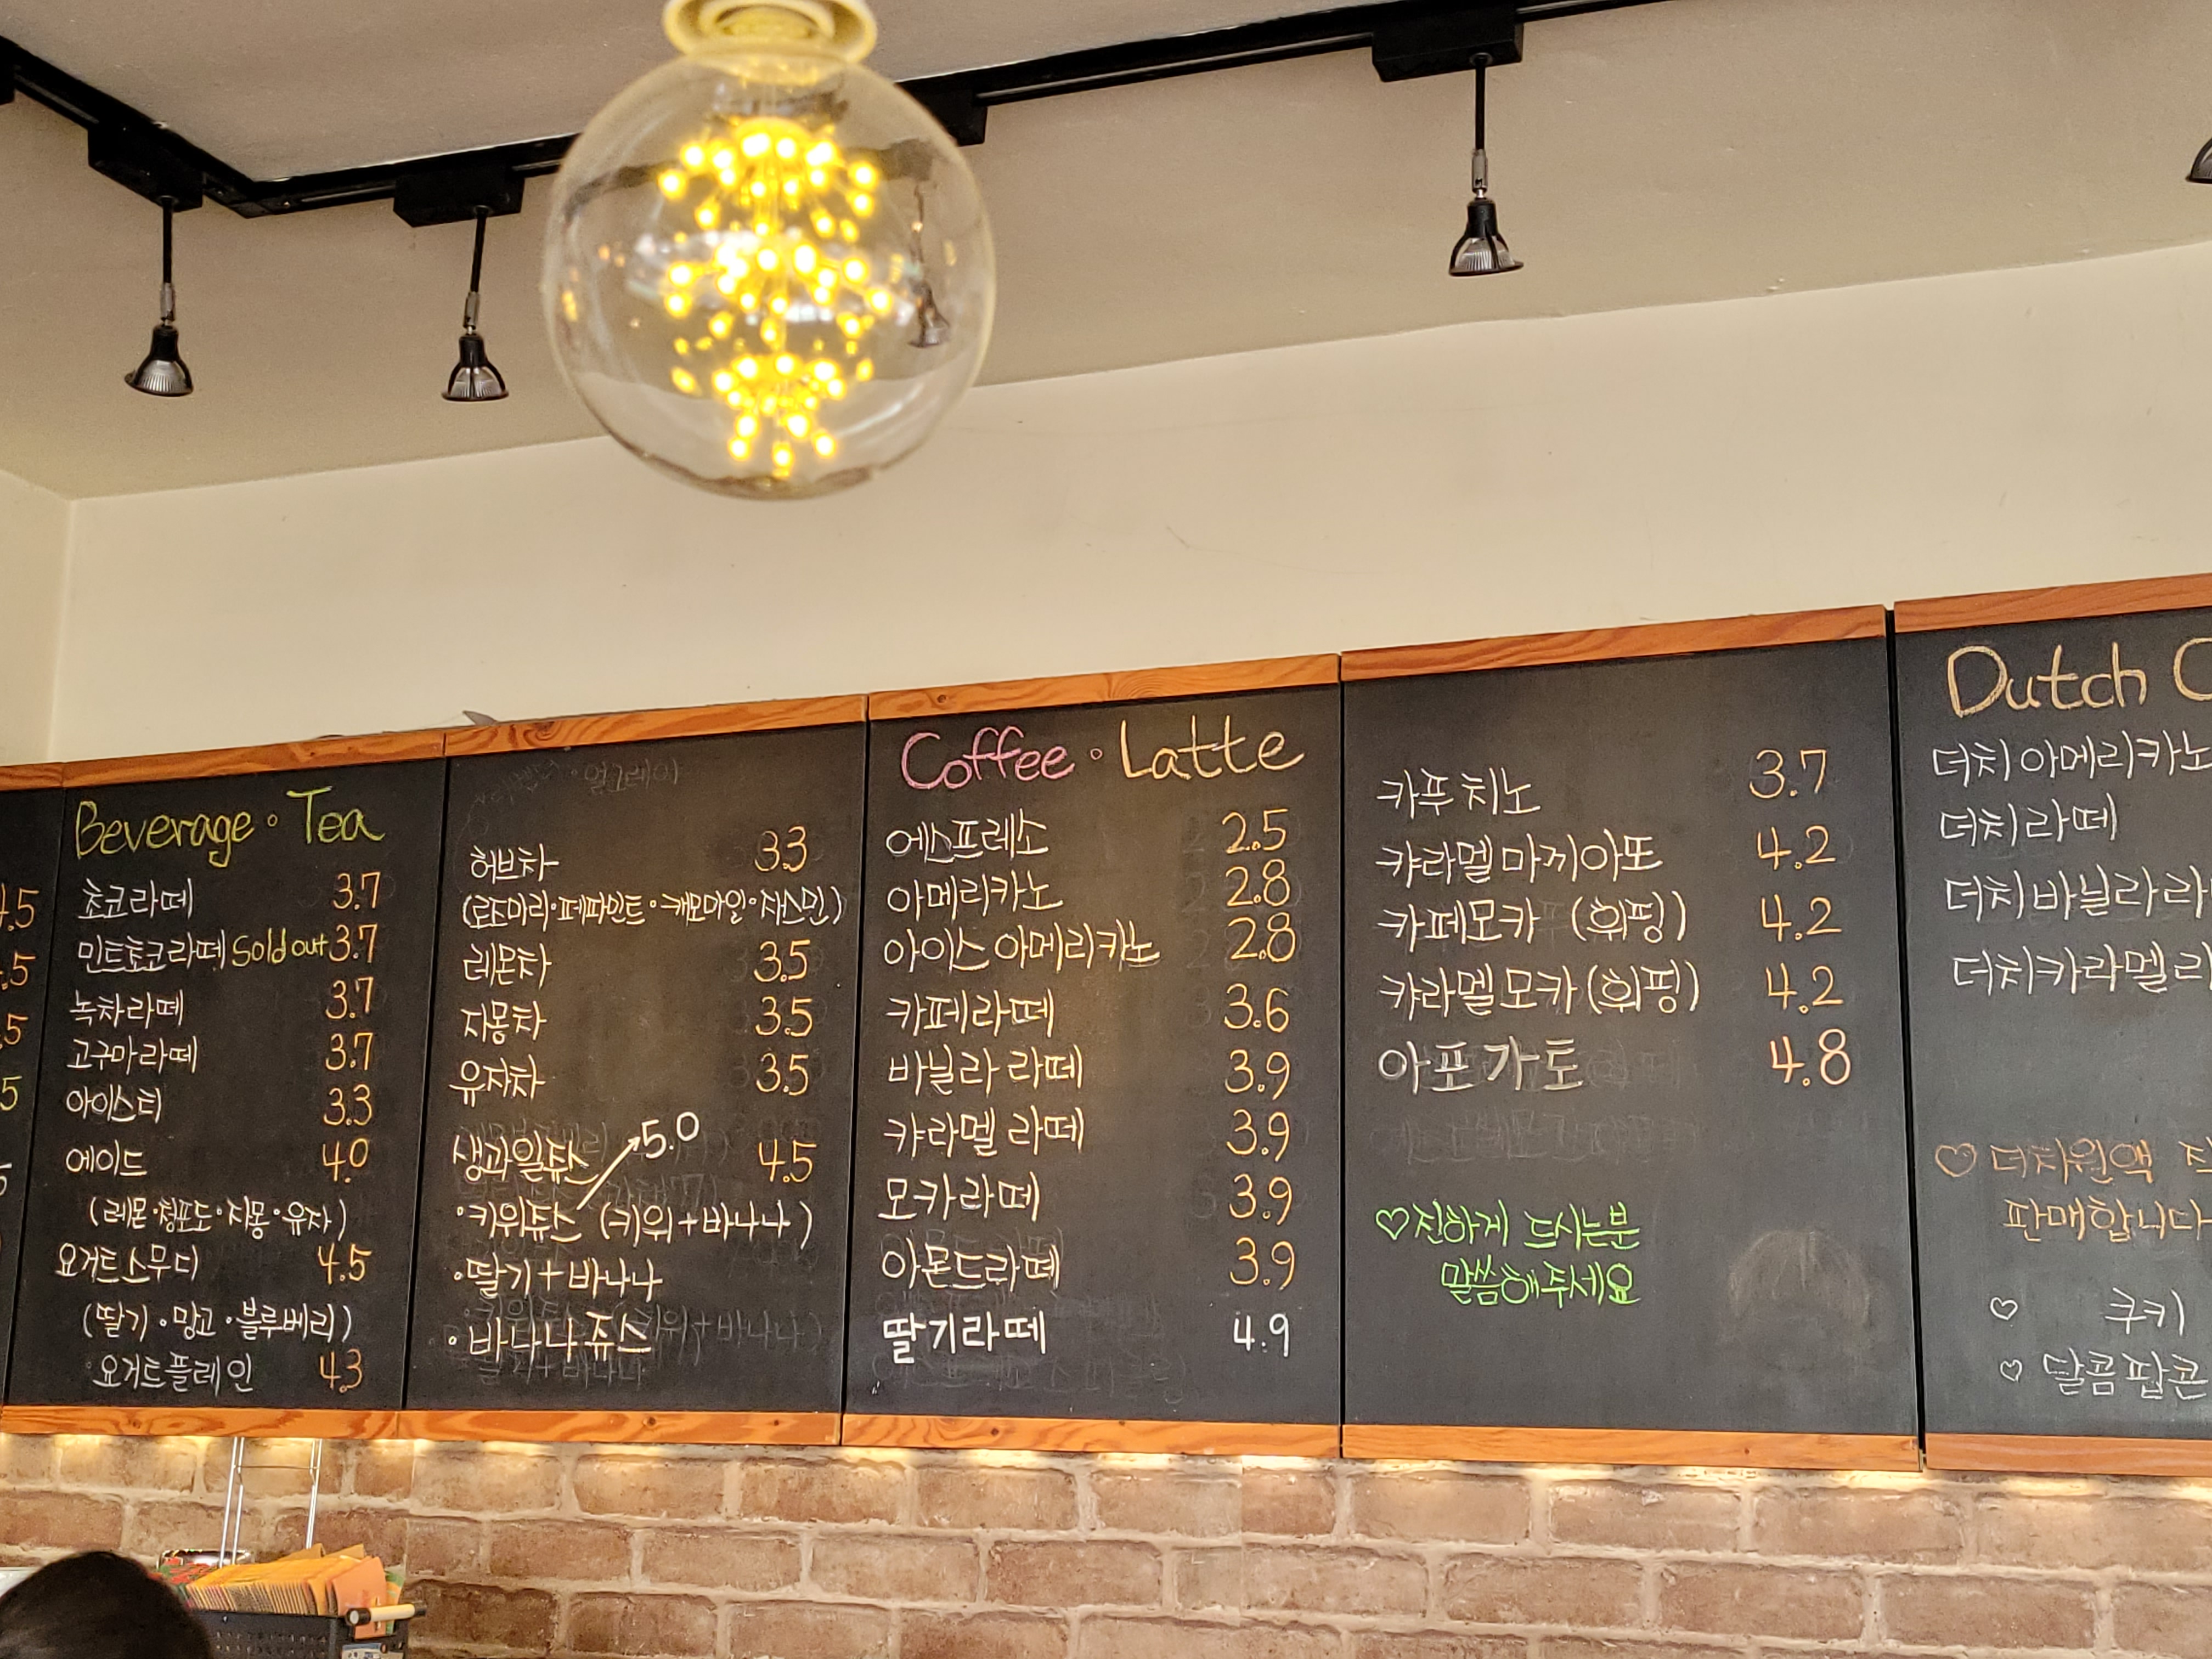 4.5
.5
.5
5
5
Beverage · Tea
초코라떼 3.7
민트초코라떼 Sold out 3.7
녹차라떼 3.7
고구마라떼 3.7
아이스티 3.3
에이드 4.0
(레몬·청포도·자몽·유자)
요거트스무디 4.5
(딸기·망고·블루베리)
요거트플레인 4.3
얼그레이
허브차 3.3
(로즈마리·페파민트·캐모마일·자스민)
레몬차 3.5
자몽차 3.5
유자차 3.5
5.0
생과일쥬스 4.5
·키위쥬스 (키위+바나나)
·딸기+바나나
·바나나쥬스
Coffee · Latte
에스프레소 2.5
아메리카노 2.8
아이스 아메리카노 2.8
카페라떼 3.6
바닐라 라떼 3.9
캬라멜 라떼 3.9
모카라떼 3.9
아몬드라떼 3.9
딸기라떼 4.9
카푸치노 3.7
캬라멜마끼아또 4.2
카페모카 (휘핑) 4.2
캬라멜모카(휘핑) 4.2
아포가토 4.8
♡진하게 드시는분
말씀해주세요
Dutch C
더치아메리카노
더치라떼
더치바닐라라
더치카라멜라
♡더치원액
판매합니다
♡ 쿠키
♡ 달콤팝콘